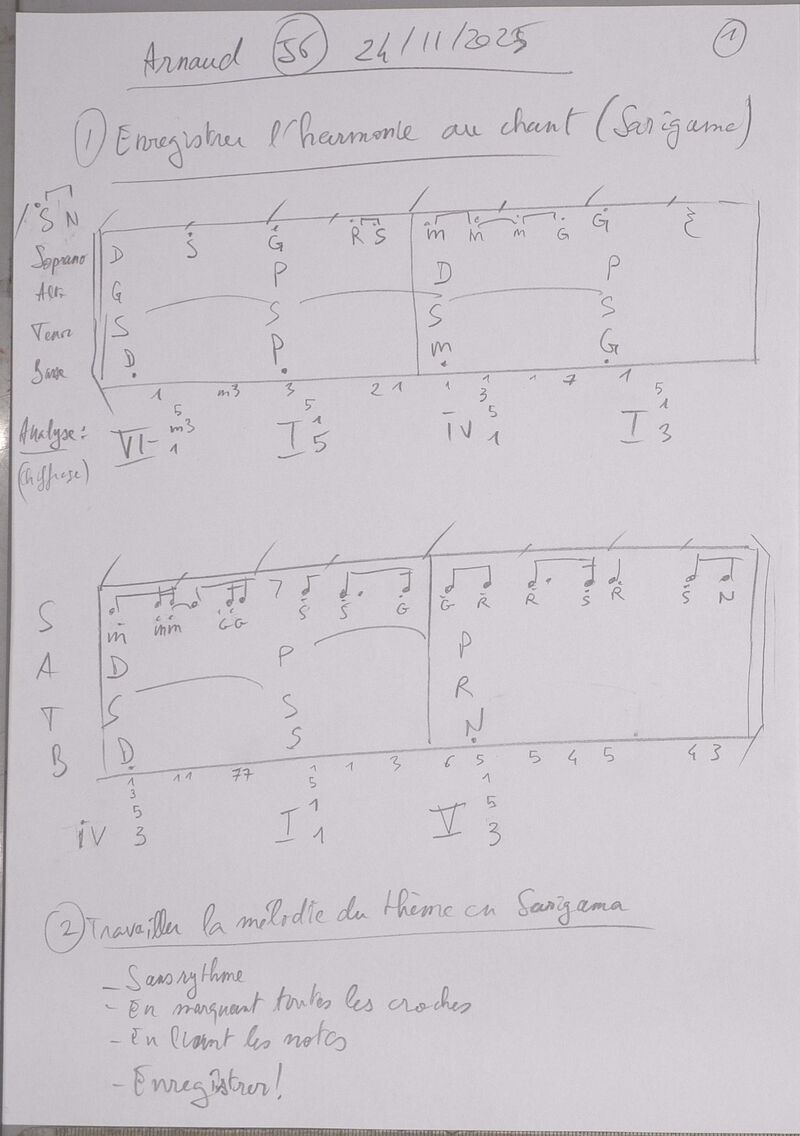 Arnaud 56 24/11/2025 1
1 Enregistrer l'harmonie au chant (Sarigame)
S N
Soprano D S G R S m m m G G
Alto G P D P
Tenor S S S S
Basse D P m G
1 m3 3 2 1 1 1 1 7 1
3
Analyse: VI- 5 m3 1 I 5 1 5 iv 5 1 I 5 1 3
(Chiffrage)
S m m m G G 7 S S G G R R S R S N
A D P P
T S S R
B D S N
1 11 77 1 1 3 6 5 5 4 5 4 3
3 5 1
iv 5 3 I 1 1 V 5 3
2 Travailler la mélodie du thème en Sarigama
- Sans rythme
- En marquant toutes les croches
- En liant les notes
- Enregistrer!